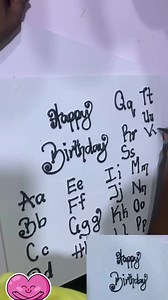 Happy
Birthday
Aa
Bb
Cc
d
Ee
Ff
Gg
H
Ii
Jj
Kk
Mm
Nn
Oo
Pp
Qq
Rr
Ss
Tt
Uu
Happy
Birthday